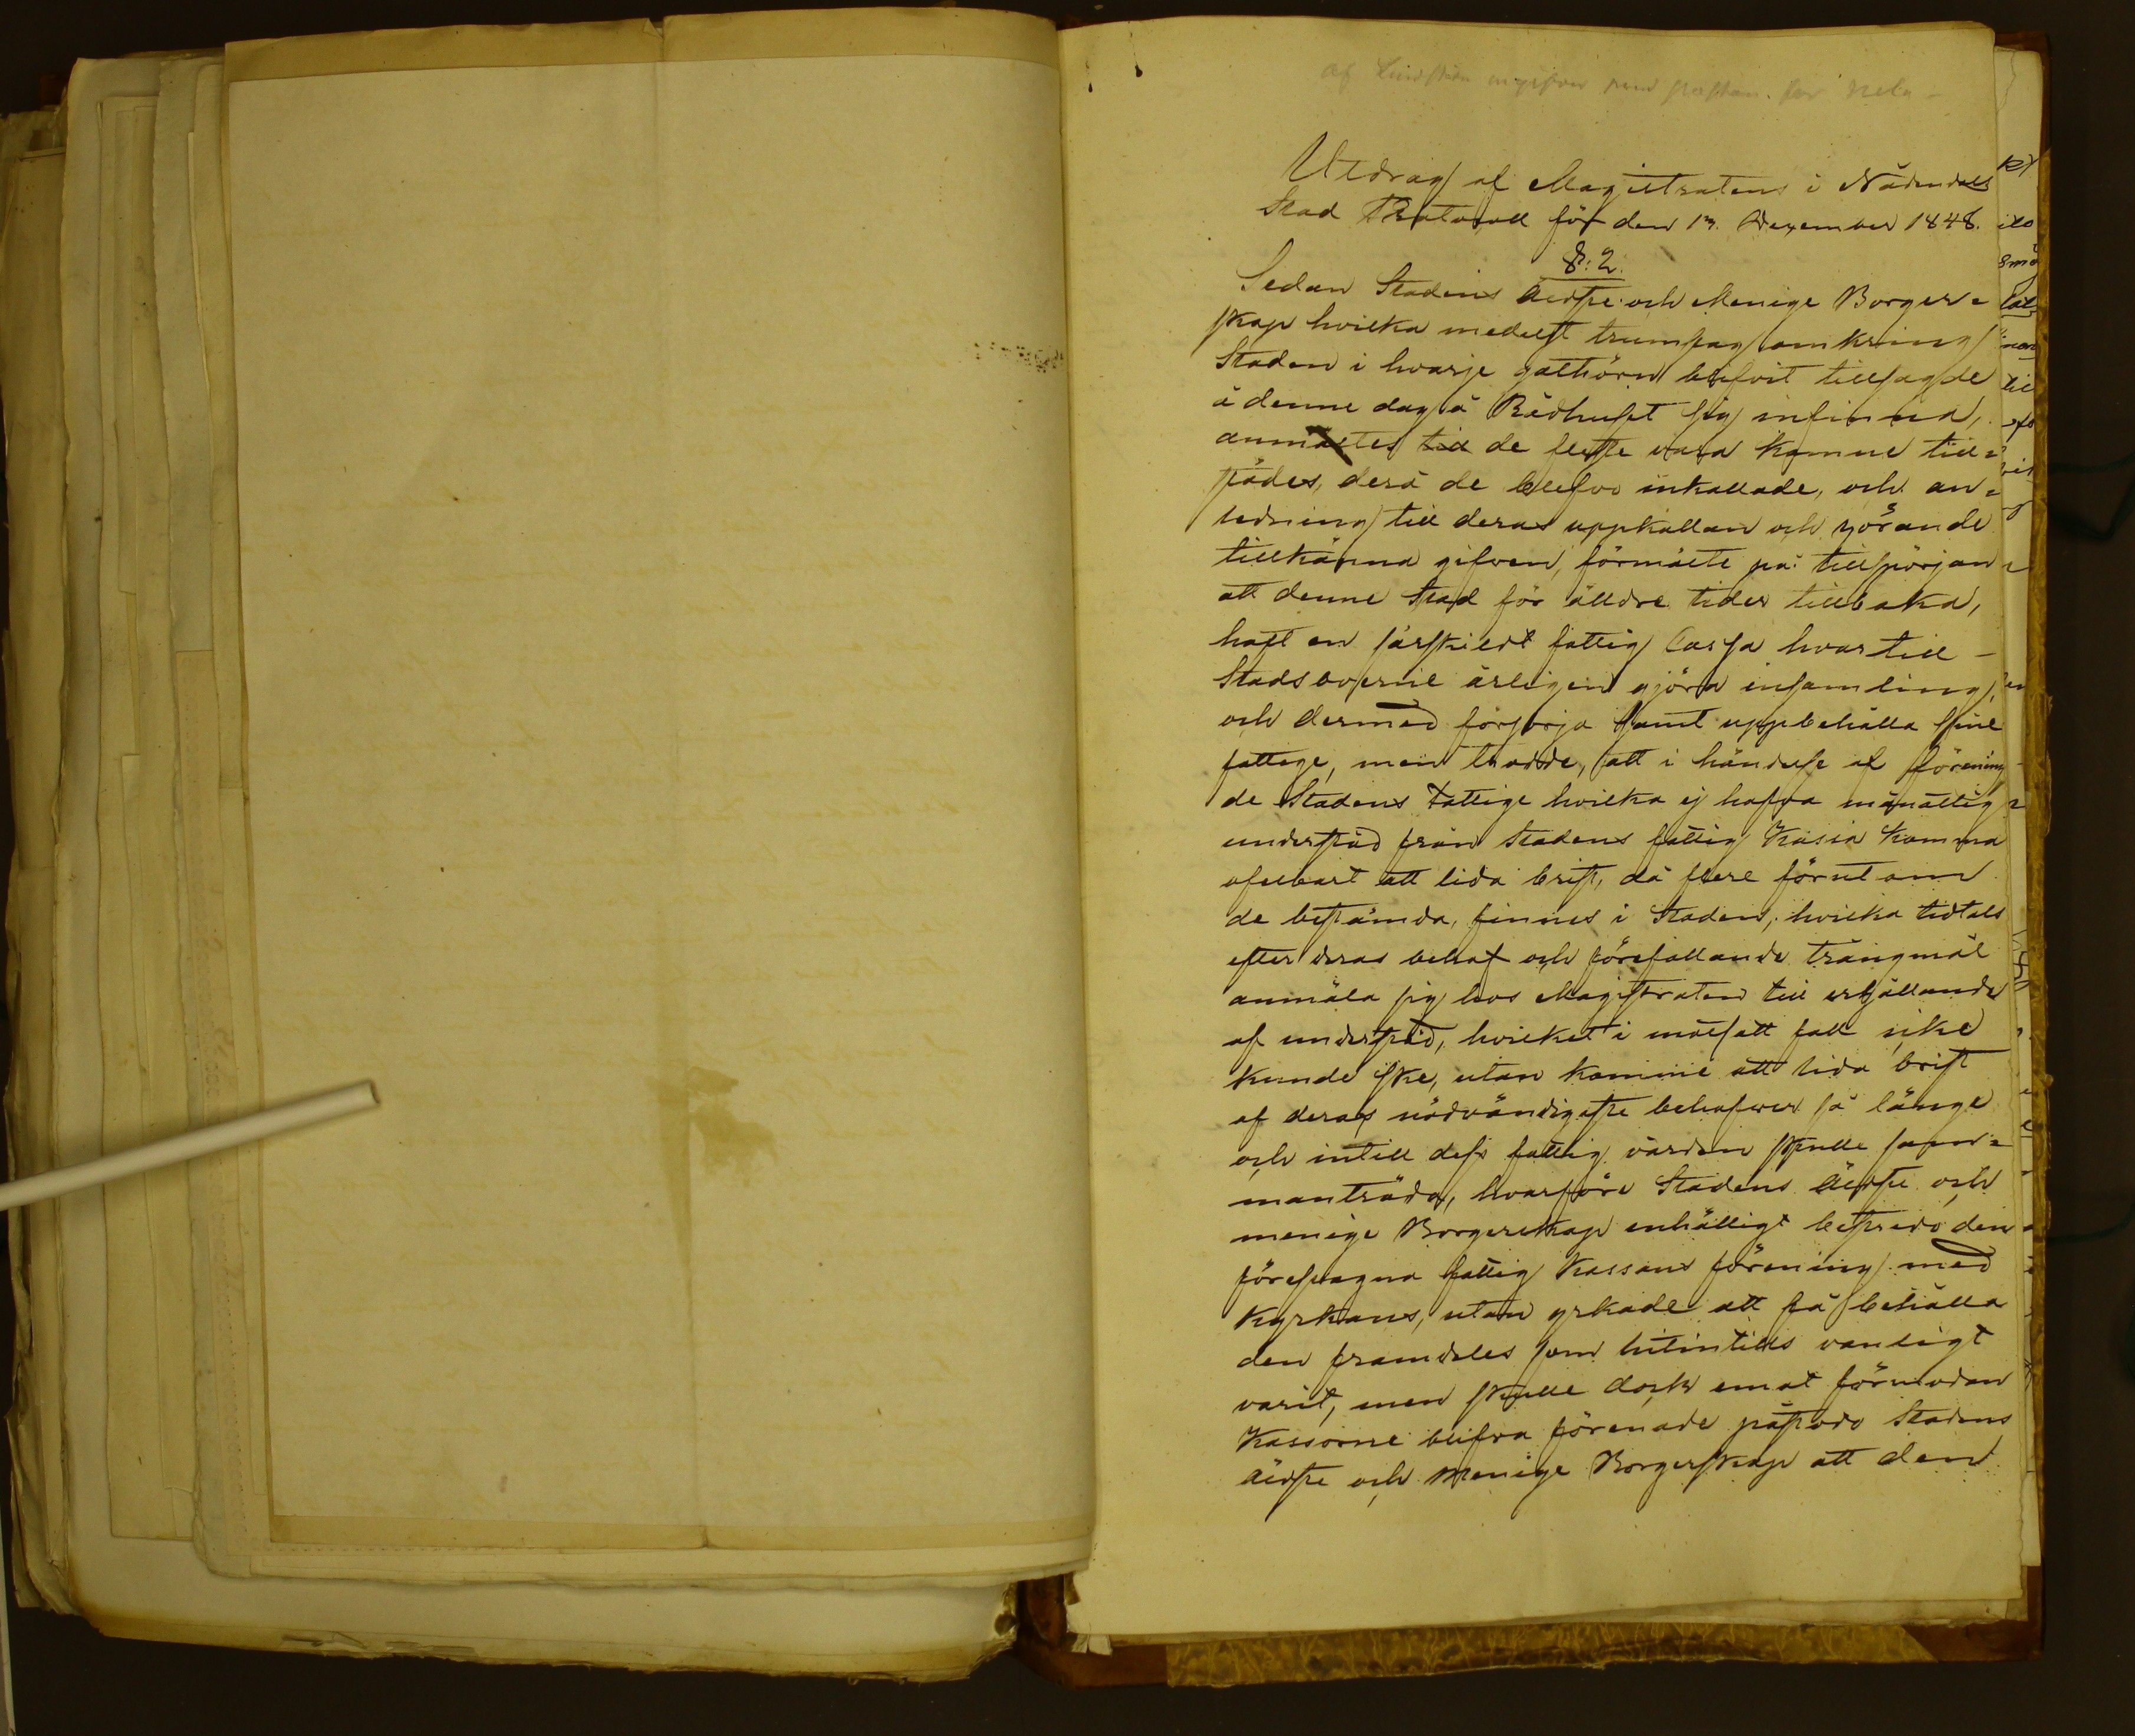 Utdrag af Magistratens i Nådendals
Stad Protocoll för den 13. December 1848.
§: 2.
Sedan Stadens Äldste och Menige Borger=
skap hvilka medelst trumslag omkring
Staden i hvarje gathörn blifvit tillsagde
å denne dag å Rådhuset sig infinna,
anmältes till de fleste vara komne till=
städes, derå de blefvo inkallade, och an=
ledning till deras uppkallan och görande
tillkänna gifven, förmälte på tillspörjan
att denne Stad för älldre tider tillbaka,
haft en särskildt fattig Cassa hvartill
Stadsboerne årligen gjöra insamling,
och dermed försörja samt uppbehålla sine
fattige, men trodde, att i händelse af förening
de Stadens fattige hvilka ej hafva månatlig
understöd från Stadens fattig Kassa komma
ofelbart att lida brist, då flere förutom
de bestämda, finnes i Staden, hvilka tidtals
efter deras behof och förefallande trångmål
anmäla sig hos Magistraten till erhållande
af understöd, hvilket i motsatt fall icke
kunde ske, utan komme att lida brist
af deras nödvändigaste behofver så länge
och intill dess fattig vården skulle sam=
manträda, hvarföre Stadens Äldste och
menige Borgerskap enhälligt bestredo den
föreslagna fattig Kassans förening med
Kyrkans, utan yrkade att få behålla
den framdeles som hitintills vanligt
varit, men skulle dock emot förmodan
Kassorne blifva förenade påstodo Stadens
äldste och Menige Borgerskap att den